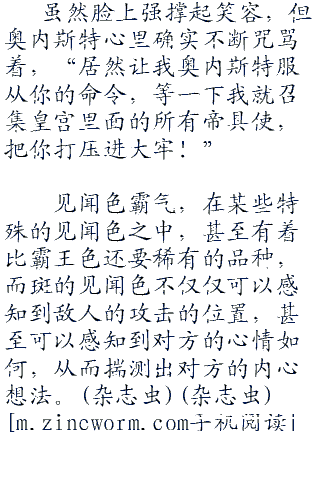 虽然脸上强撑起笑容，但
奥内斯特心里确实不断咒骂
着，“居然让我奥内斯特服
从你的命令，等一下我就召
集皇宫里面的所有帝具使，
把你打压进大牢！”
见闻色霸气，在某些特
殊的见闻色之中，甚至有着
比霸王色还要稀有的品种，
而斑的见闻色不仅仅可以感
知到敌人的攻击的位置，甚
至可以感知到对方的心情如
何，从而揣测出对方的内心
想法。(杂志虫)(杂志虫)
[m.zincworm.com手机阅读|